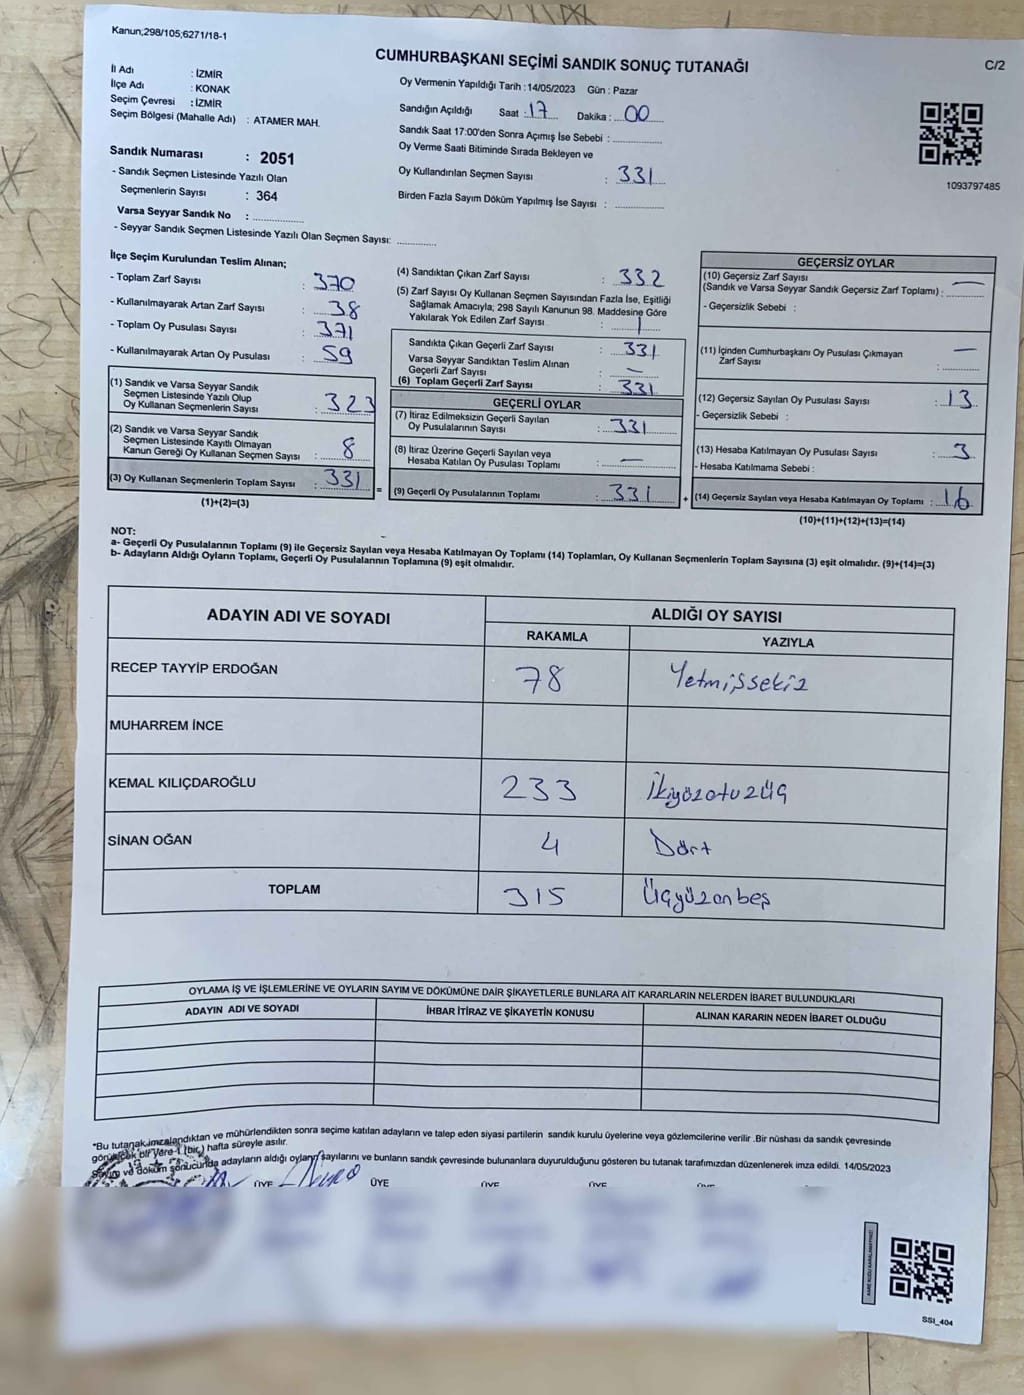 Kanun;298/105;6271/18-1
CUMHURBAŞKANI SEÇİMİ SANDIK SONUÇ TUTANAĞI
C/2
İl Adı : İZMİR
İlçe Adı : KONAK
Seçim Çevresi : İZMİR
Seçim Bölgesi (Mahalle Adı) : ATAMER MAH.
Sandık Numarası : 2051
- Sandık Seçmen Listesinde Yazılı Olan
Seçmenlerin Sayısı : 364
Varsa Seyyar Sandık No :
- Seyyar Sandık Seçmen Listesinde Yazılı Olan Seçmen Sayısı:
Oy Vermenin Yapıldığı Tarih : 14/05/2023 Gün : Pazar
Sandığın Açıldığı Saat : 17 Dakika : 00
Sandık Saat 17:00'den Sonra Açımış İse Sebebi :
Oy Verme Saati Bitiminde Sırada Bekleyen ve
Oy Kullandırılan Seçmen Sayısı : 331
Birden Fazla Sayım Döküm Yapılmış İse Sayısı :
1093797485
İlçe Seçim Kurulundan Teslim Alınan;
- Toplam Zarf Sayısı : 370
- Kullanılmayarak Artan Zarf Sayısı : 38
- Toplam Oy Pusulası Sayısı : 371
- Kullanılmayarak Artan Oy Pusulası : 59
(1) Sandık ve Varsa Seyyar Sandık
Seçmen Listesinde Yazılı Olup
Oy Kullanan Seçmenlerin Sayısı : 323
(2) Sandık ve Varsa Seyyar Sandık
Seçmen Listesinde Kayıtlı Olmayan
Kanun Gereği Oy Kullanan Seçmen Sayısı : 8
(3) Oy Kullanan Seçmenlerin Toplam Sayısı : 331
(1)+(2)=(3)
(4) Sandıktan Çıkan Zarf Sayısı : 332
(5) Zarf Sayısı Oy Kullanan Seçmen Sayısından Fazla İse, Eşitliği
Sağlamak Amacıyla; 298 Sayılı Kanunun 98. Maddesine Göre
Yakılarak Yok Edilen Zarf Sayısı : 1
Sandıkta Çıkan Geçerli Zarf Sayısı : 331
Varsa Seyyar Sandıktan Teslim Alınan
Geçerli Zarf Sayısı : —
(6) Toplam Geçerli Zarf Sayısı : 331
GEÇERLİ OYLAR
(7) İtiraz Edilmeksizin Geçerli Sayılan
Oy Pusulalarının Sayısı : 331
(8) İtiraz Üzerine Geçerli Sayılan veya
Hesaba Katılan Oy Pusulası Toplamı : —
= (9) Geçerli Oy Pusulalarının Toplamı : 331 +
GEÇERSİZ OYLAR
(10) Geçersiz Zarf Sayısı
(Sandık ve Varsa Seyyar Sandık Geçersiz Zarf Toplamı) : —
- Geçersizlik Sebebi :
(11) İçinden Cumhurbaşkanı Oy Pusulası Çıkmayan
Zarf Sayısı : —
(12) Geçersiz Sayılan Oy Pusulası Sayısı : 13
- Geçersizlik Sebebi :
(13) Hesaba Katılmayan Oy Pusulası Sayısı : 3
- Hesaba Katılmama Sebebi :
(14) Geçersiz Sayılan veya Hesaba Katılmayan Oy Toplamı : 16
(10)+(11)+(12)+(13)=(14)
NOT:
a- Geçerli Oy Pusulalarının Toplamı (9) ile Geçersiz Sayılan veya Hesaba Katılmayan Oy Toplamı (14) Toplamları, Oy Kullanan Seçmenlerin Toplam Sayısına (3) eşit olmalıdır. (9)+(14)=(3)
b- Adayların Aldığı Oyların Toplamı, Geçerli Oy Pusulalarının Toplamına (9) eşit olmalıdır.
ADAYIN ADI VE SOYADI ALDIĞI OY SAYISI
RAKAMLA YAZIYLA
RECEP TAYYİP ERDOĞAN 78 Yetmişsekiz
MUHARREM İNCE
KEMAL KILIÇDAROĞLU 233 İkiyüzotuzüç
SİNAN OĞAN 4 Dört
TOPLAM 315 Üçyüzonbeş
OYLAMA İŞ VE İŞLEMLERİNE VE OYLARIN SAYIM VE DÖKÜMÜNE DAİR ŞİKAYETLERLE BUNLARA AİT KARARLARIN NELERDEN İBARET BULUNDUKLARI
ADAYIN ADI VE SOYADI İHBAR İTİRAZ VE ŞİKAYETİN KONUSU ALINAN KARARIN NEDEN İBARET OLDUĞU
*Bu tutanak imzalandıktan ve mühürlendikten sonra seçime katılan adayların ve talep eden siyasi partilerin sandık kurulu üyelerine veya gözlemcilerine verilir .Bir nüshası da sandık çevresinde
görülecek bir yere 1 (bir) hafta süreyle asılır.
Sayım ve döküm sonucunda adayların aldığı oyların sayılarını ve bunların sandık çevresinde bulunanlara duyurulduğunu gösteren bu tutanak tarafımızdan düzenlenerek imza edildi. 14/05/2023
ÜYE ÜYE ÜYE ÜYE ÜYE
SSI_404